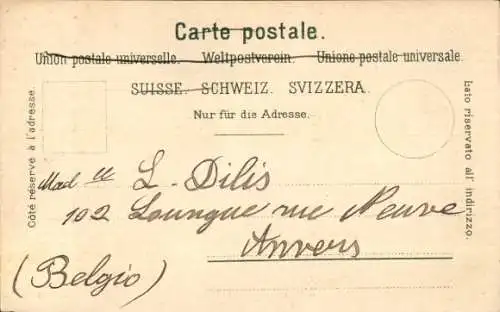 Carte postale.
Union postale universelle. Weltpostverein. Unione postale universale.
SUISSE. SCHWEIZ. SVIZZERA.
Nur für die Adresse.
Côté réservé à l'adresse.
Lato riservato all' indirizzo.
Mad lle L. Dilis
102 Loungue rue Neuve
Anvers
(Belgio)